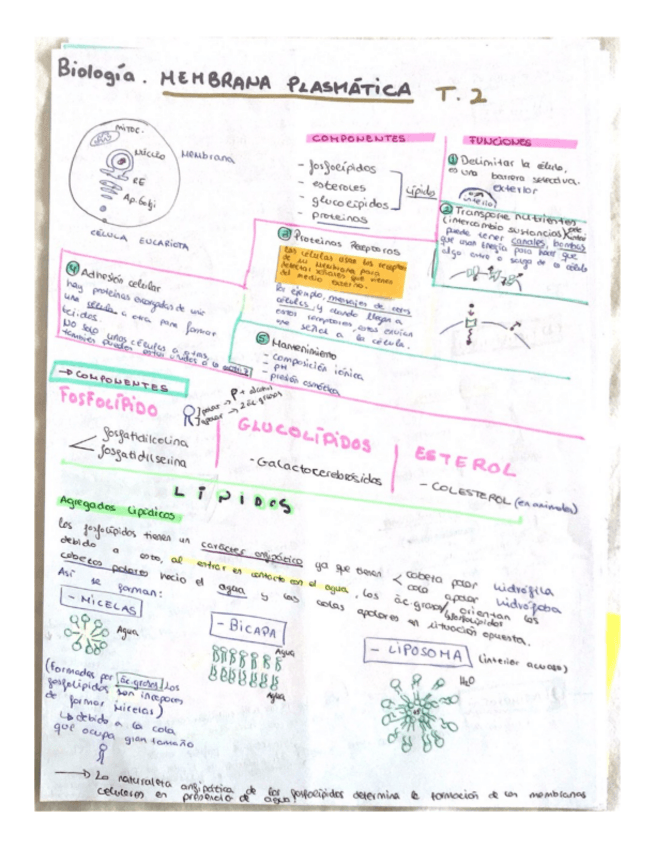 Biología. MEMBRANA PLASMÁTICA T.2
mitoc.
Núcleo
Membrana
RE
Ap. Golgi
CÉLULA EUCARIOTA
COMPONENTES
- fosfolípidos
- esteroles
- glucolípidos
- proteínas
lípidos
FUNCIONES
① Delimitar la célula,
es una barrera selectiva.
exterior
interior
② Transporte nutrientes
(intercambio sustancias)
puede tener canales, bombas
que usan energía para hacer que
algo entre o salga de la célula
③ Proteínas Receptoras
Las células usan los receptores
de su membrana para
detectar señales que vienen
del medio externo.
Por ejemplo, mensajes de otras
células, y cuando llegan a
estos receptores, estos envían
una señal a la célula.
④ Adhesión celular
hay proteínas encargadas de unir
una célula a otra para formar
tejidos.
NO solo unas células a otras,
también pueden estar unidas a la matriz
⑤ Mantenimiento
- composición iónica
- pH
- presión osmótica
→ COMPONENTES
FOSFOLÍPIDO
polar → P + alcohol
apolar → 2 ác. grasos
fosfatidilcolina
fosfatidilserina
GLUCOLÍPIDOS
- Galactocerebrósidos
ESTEROL
- COLESTEROL (en animales)
LÍPIDOS
Agregados Lipídicos
Los fosfolípidos tienen un carácter anfipático ya que tienen
cabeza polar hidrófila
cola apolar hidrófoba
debido a esto, al entrar en contacto con el agua, los ác. grasos/ fosfolípidos orientan las
cabezas polares hacia el agua y las colas apolares en situación opuesta.
Así se forman:
- MICELAS
Agua
(formadas por ác. grasos, los
fosfolípidos son incapaces
de formar micelas)
↳ debido a la cola
que ocupa gran tamaño
- BICAPA
Agua
Agua
- LIPOSOMA (interior acuoso)
H₂O
→ La naturaleza anfipática de los fosfolípidos determina la formación de las membranas
celulares en presencia de agua!